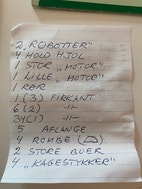 2 „ROBOTTER"
4 HOLD HJUL
1 STOR „MOTOR"
1 LILLE „MOTOR"
1 RØR
1 (3) FIRKANT
6 (2) -11-
34(1) -11-
5 AFLANGE
4 ROMBE
2 STORE BUER
4 „KAGESTYKKER"